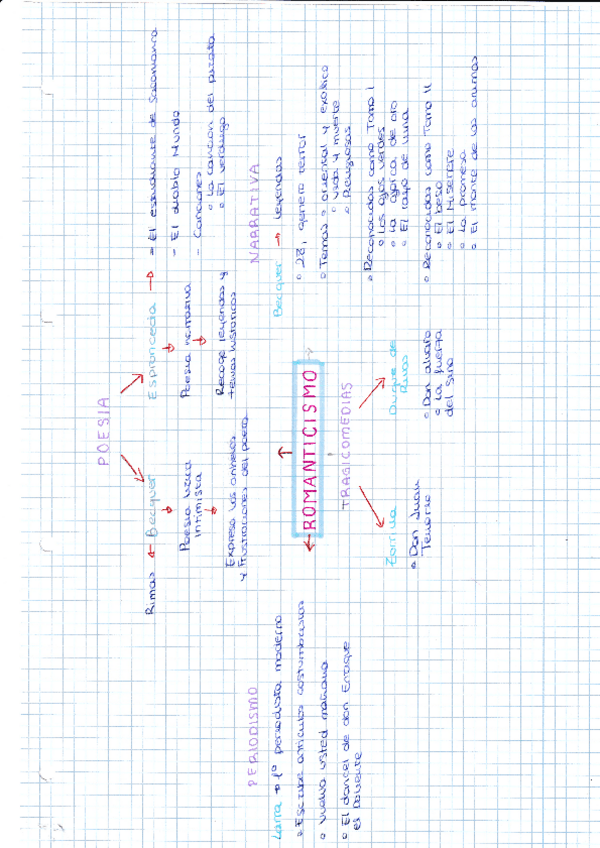 POESIA
Rimas ← Becquer
Poesia lírica
intimista
Expresa los anhelos
y frustraciones del poeta
Espronceda →
Poesia narrativa
Recoge leyendas y
temas historicos
- El estudiante de Salamanca
- El diablo Mundo
- Canciones
• La canción del pirata
• El verdugo
PERIODISMO
Larra → 1º periodista moderno
• Escribe articulos costumbristas
• Vuelva usted mañana
• El doncel de don Enrique
el Doliente
ROMANTICISMO
NARRATIVA
Becquer → Leyendas
• 28, genero terror
• Temas • oriental y exotico
• Vida y muerte
• Religiosas
• Reconocidas como Tomo I
• Los ojos verdes
• La ajorca de oro
• El rayo de luna
• Reconocidas como Tomo II
• El beso
• El Miserere
• La promesa
• El monte de las animas
TRAGICOMEDIAS
Zorrilla
• Don Juan
Tenorio
Duque de
Rivas
• Don alvaro
o la fuerza
del Sino